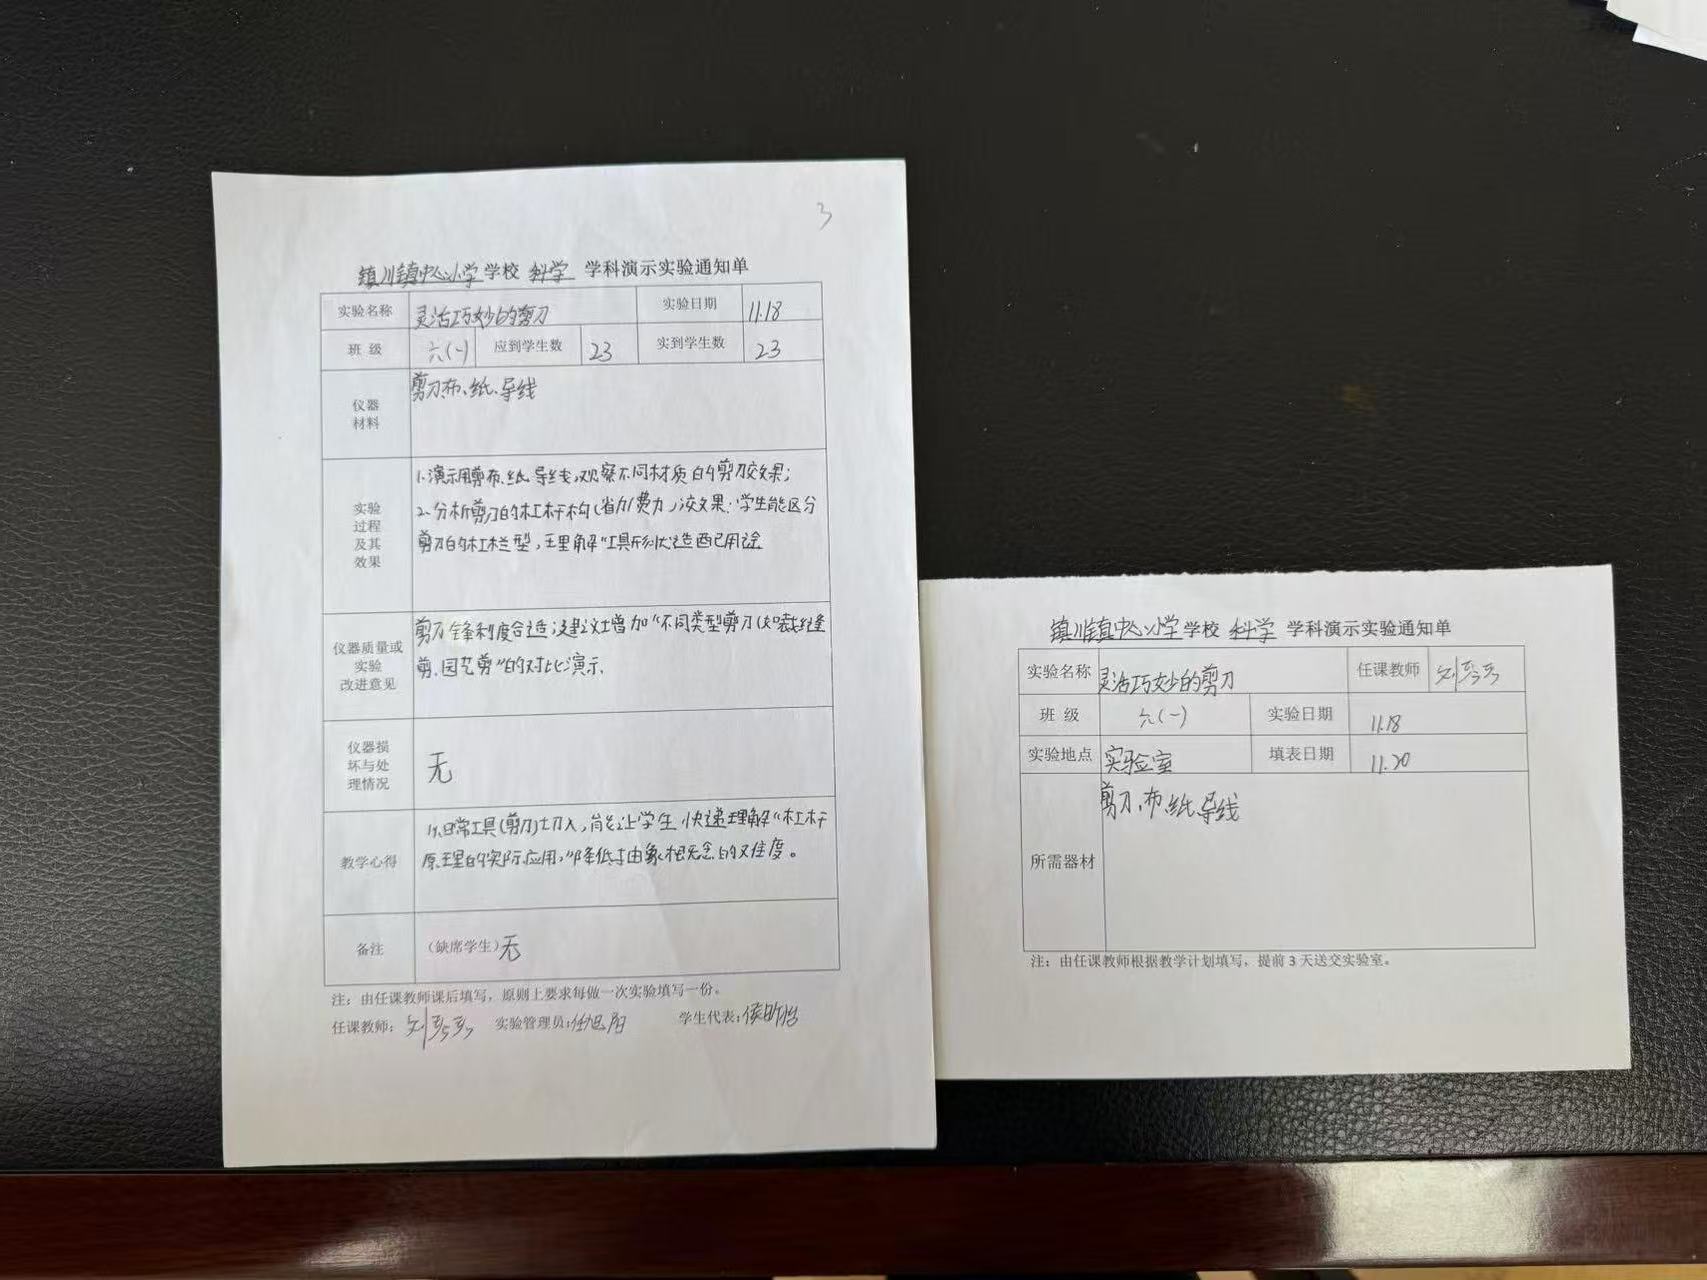 3
镇川镇中心小学学校 科学 学科演示实验通知单
实验名称 灵活巧妙的剪刀 实验日期 11.18
班 级 六(一) 应到学生数 23 实到学生数 23
仪器
材料
剪刀、布、纸、导线
实验
过程
及其
效果
1.演示用剪布、纸、导线,观察不同材质的剪刀效果;
2.分析剪刀的杠杆构(省力/费力),效果:学生能区分
剪刀的杠杆型,理解"工具形状适配用途
仪器质量或
实验
改进意见
剪刀锋利度合适;建议增加"不同类型剪刀(如裁缝
剪、园艺剪"的对比演示.
仪器损
坏与处
理情况
无
教学心得
以日常工具(剪刀)切入,能让学生快速理解"杠杆
原理的实际应用,"降低抽象概念的难度。
备注 (缺席学生)无
注:由任课教师课后填写,原则上要求每做一次实验填写一份。
任课教师: 刘 实验管理员:任旭阳 学生代表:侯昕怡
镇川镇中心小学学校 科学 学科演示实验通知单
实验名称 灵活巧妙的剪刀 任课教师 刘
班 级 六(一) 实验日期 11.18
实验地点 实验室 填表日期 11.20
所需器材
剪刀、布、纸、导线
注:由任课教师根据教学计划填写,提前 3 天送交实验室。